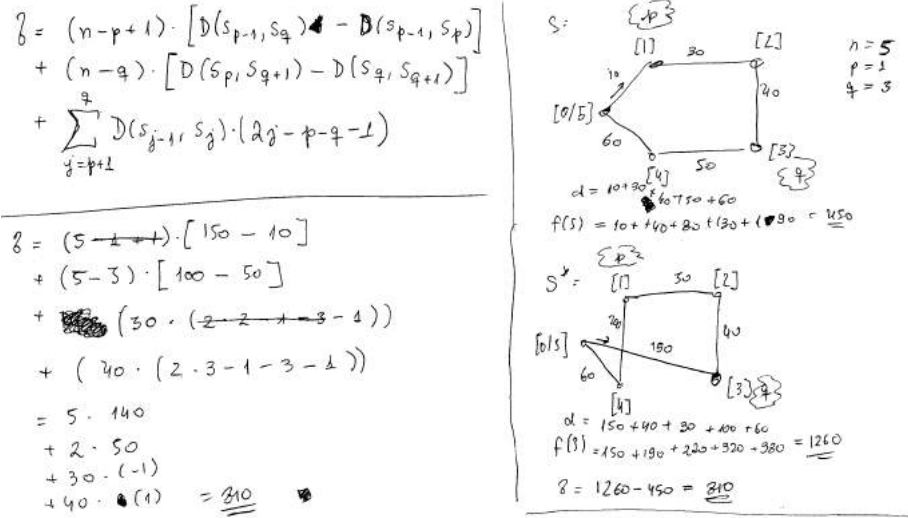 δ = (n-p+1) · [D(S_{p-1}, S_q) - D(S_{p-1}, S_p)]
+ (n-q) · [D(S_p, S_{q+1}) - D(S_q, S_{q+1})]
+ \sum_{j=p+1}^{q} D(S_{j-1}, S_j) · (2j-p-q-1)
δ = (5-1+1) · [150 - 10]
+ (5-3) · [100 - 50]
+ (30 · (2·2-1-3-1))
+ (40 · (2·3-1-3-1))
= 5 · 140
+ 2 · 50
+ 30 · (-1)
+ 40 · (1) = 810
S:
{p}
[1] 30 [2]
10
[0/5]
40
60
[4] 50 [3]
{q}
n = 5
p = 1
q = 3
d = 10+30+40+50+60
f(S) = 10+40+80+130+190 = 450
{p}
S* = [1] 30 [2]
100
40
[0/5] 150
60
[4]
[3] {q}
d = 150+40+30+100+60
f(S) = 150+190+220+320+380 = 1260
δ = 1260-450 = 810